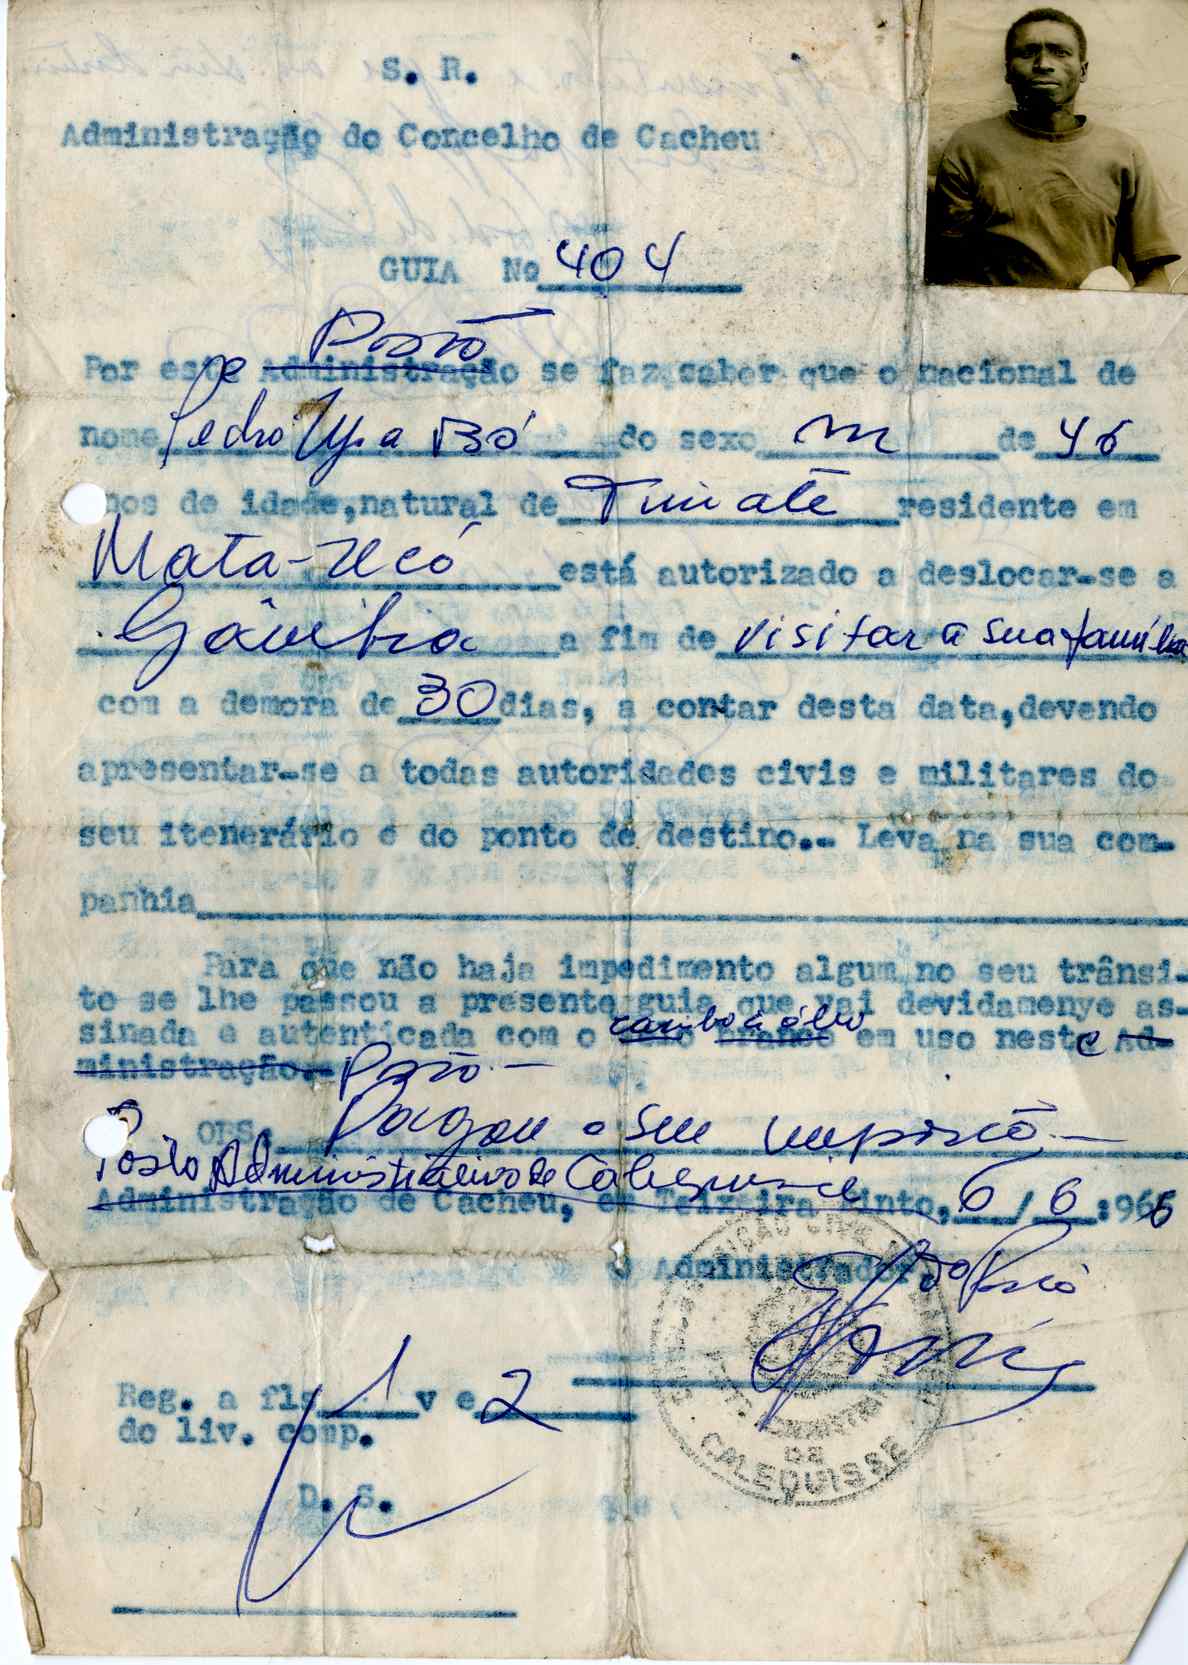 S. R.
Administração do Concelho de Cacheu
GUIA Nº 404
Posto
Por este Administração se faz saber que o nacional de
nome Pedro Upa Bó do sexo m de 46
anos de idade, natural de Timate residente em
Mata-Ucó está autorizado a deslocar-se a
Gâmbia a fim de visitar a sua família
com a demora de 30 dias, a contar desta data, devendo
apresentar-se a todas autoridades civis e militares do
seu itenerário e do ponto de destino.. Leva na sua com-
panhia
Para que não haja impedimento algum no seu trânsi-
to se lhe passou a presente guia que vai devidamenye as-
carimbo a óleo
sinada e autenticada com o branco em uso neste Ad-
ministração.- Posto.-
OBS. Pagou o seu imposto.-
Posto Administrativo de Calequisse
Administração de Cacheu, em Teixeira Pinto, 6/6/:966
O Administrador, do Posto
Reg. a fls 1 v e 2
do liv. comp.
DE
CALEQUISSE
D. S.